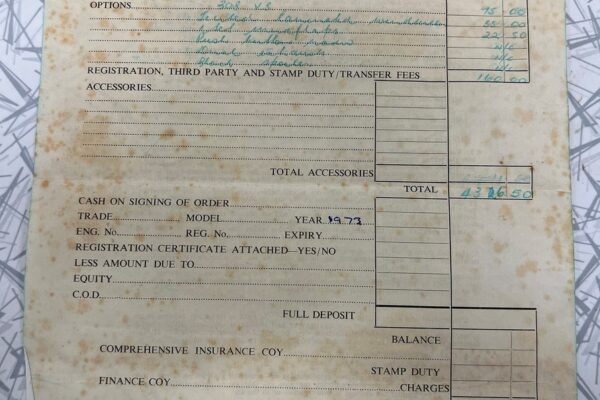 OPTIONS 308 V.8 95 00
laminated 55 00
22 50
Push button radio N/C
Dual exhausts N/C
N/C
REGISTRATION, THIRD PARTY AND STAMP DUTY/TRANSFER FEES 160 00
ACCESSORIES
TOTAL ACCESSORIES
TOTAL 4326 50
CASH ON SIGNING OF ORDER
TRADE MODEL YEAR 1973
ENG. No. REG. No. EXPIRY
REGISTRATION CERTIFICATE ATTACHED—YES/NO
LESS AMOUNT DUE TO
EQUITY
C.O.D.
FULL DEPOSIT
BALANCE
COMPREHENSIVE INSURANCE COY.
STAMP DUTY
FINANCE COY. CHARGES